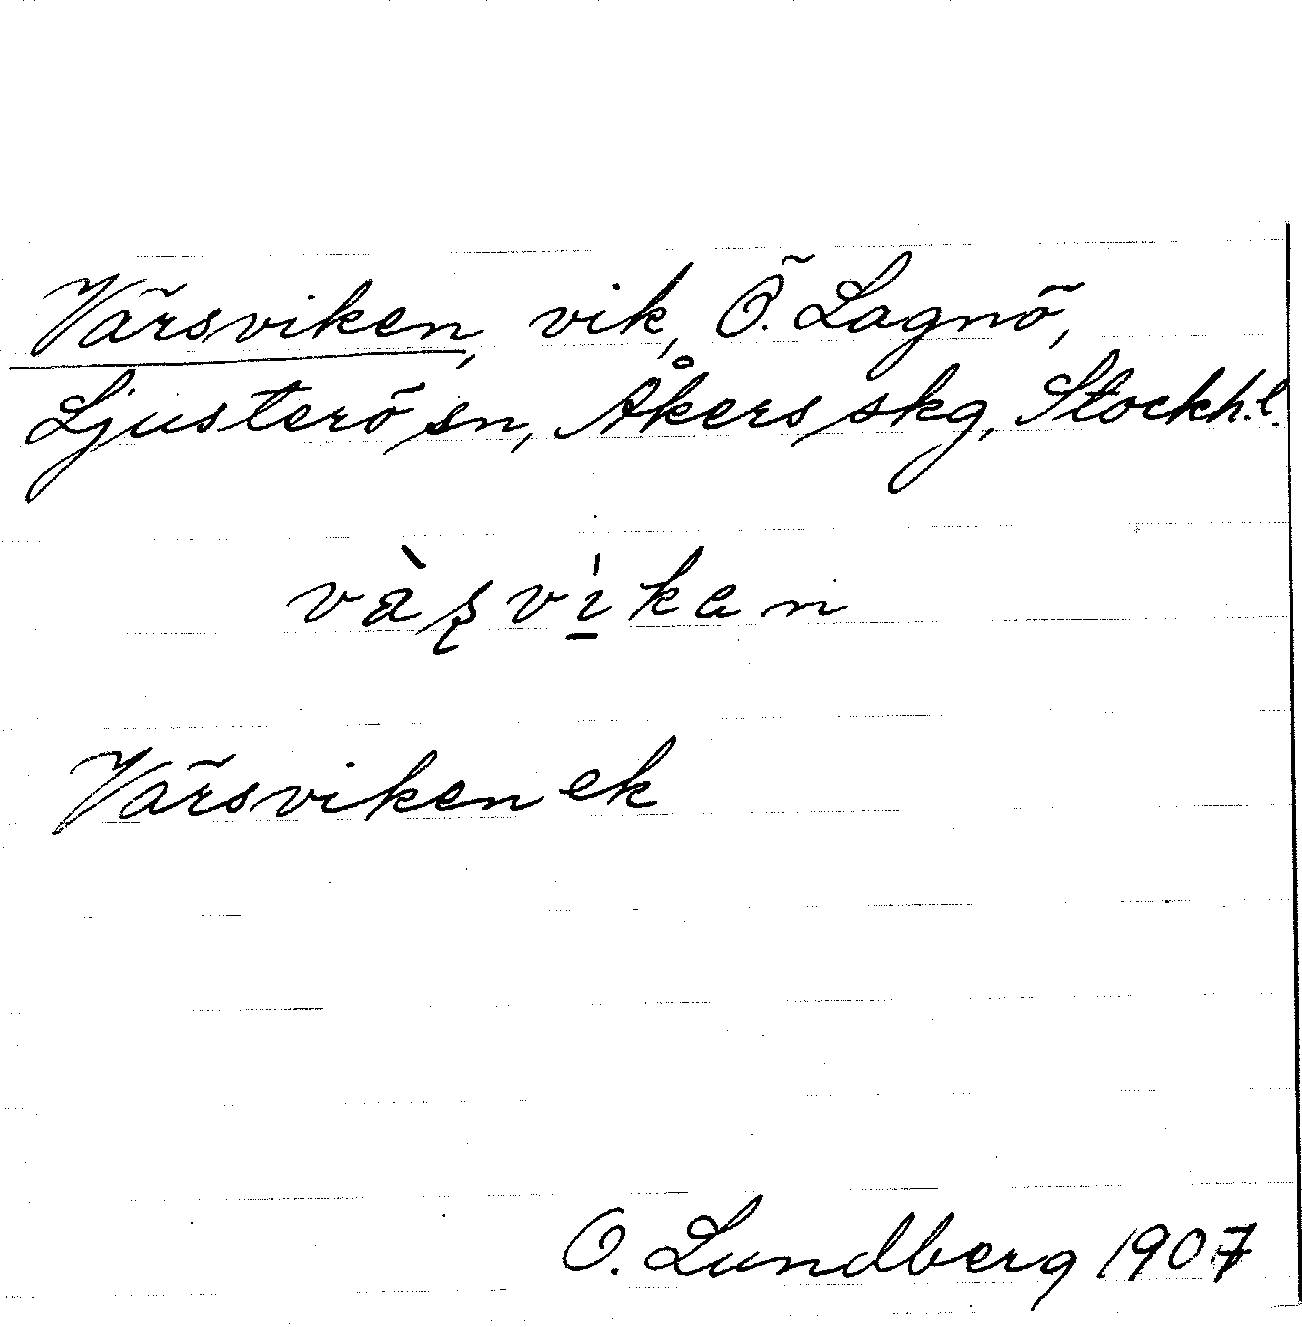 Värsviken, vik, Ö. Lagnö,
Ljusterö sn, Åkers skg, Stockh. l.
và̀ʂvìkən
Värsviken ek
O. Lundberg 1907